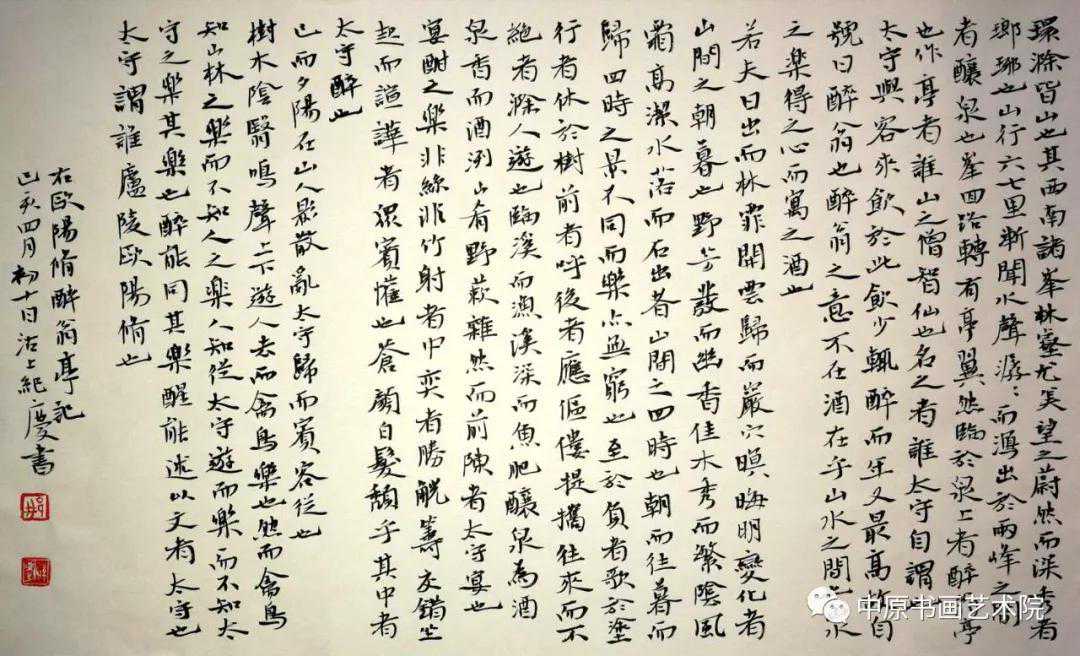 環滁皆山也其西南諸峯林壑尤美望之蔚然而深秀者
瑯琊也山行六七里漸聞水聲潺：而瀉出於兩峰之間
者釀泉也峯回路轉有亭翼然臨於泉上者醉亭
也作亭者誰山之僧智仙也名之者誰太守自謂也
太守與客來飲於此飲少輒醉而年又最高故自
號曰醉翁也醉翁之意不在酒在乎山水之間也山水
之樂得之心而寓之酒也
若夫日出而林霏開雲歸而巖穴暝晦明變化者
山間之朝暮也野芳發而幽香佳木秀而繁陰風
霜高潔水落而石出者山間之四時也朝而往暮而
歸四時之景不同而樂亦無窮也至於負者歌於塗
行者休於樹前者呼後者應傴僂提攜往來而不
絕者滁人遊也臨溪而漁溪深而魚肥釀泉為酒
泉香而酒洌山肴野蔌雜然而前陳者太守宴也
宴酣之樂非絲非竹射者中奕者勝觥籌交錯坐
起而諠譁者眾賓懽也蒼顏白髮頹乎其中者
太守醉也
已而夕陽在山人影散亂太守歸而賓客從也
樹木陰翳鳴聲上下遊人去而禽鳥樂也然而禽鳥
知山林之樂而不知人之樂人知從太守遊而樂而不知太
守之樂其樂也醉能同其樂醒能述以文者太守也
太守謂誰廬陵歐陽脩也
右歐陽脩醉翁亭記
己亥四月初十日沽上紀慶書
中原书画艺术院